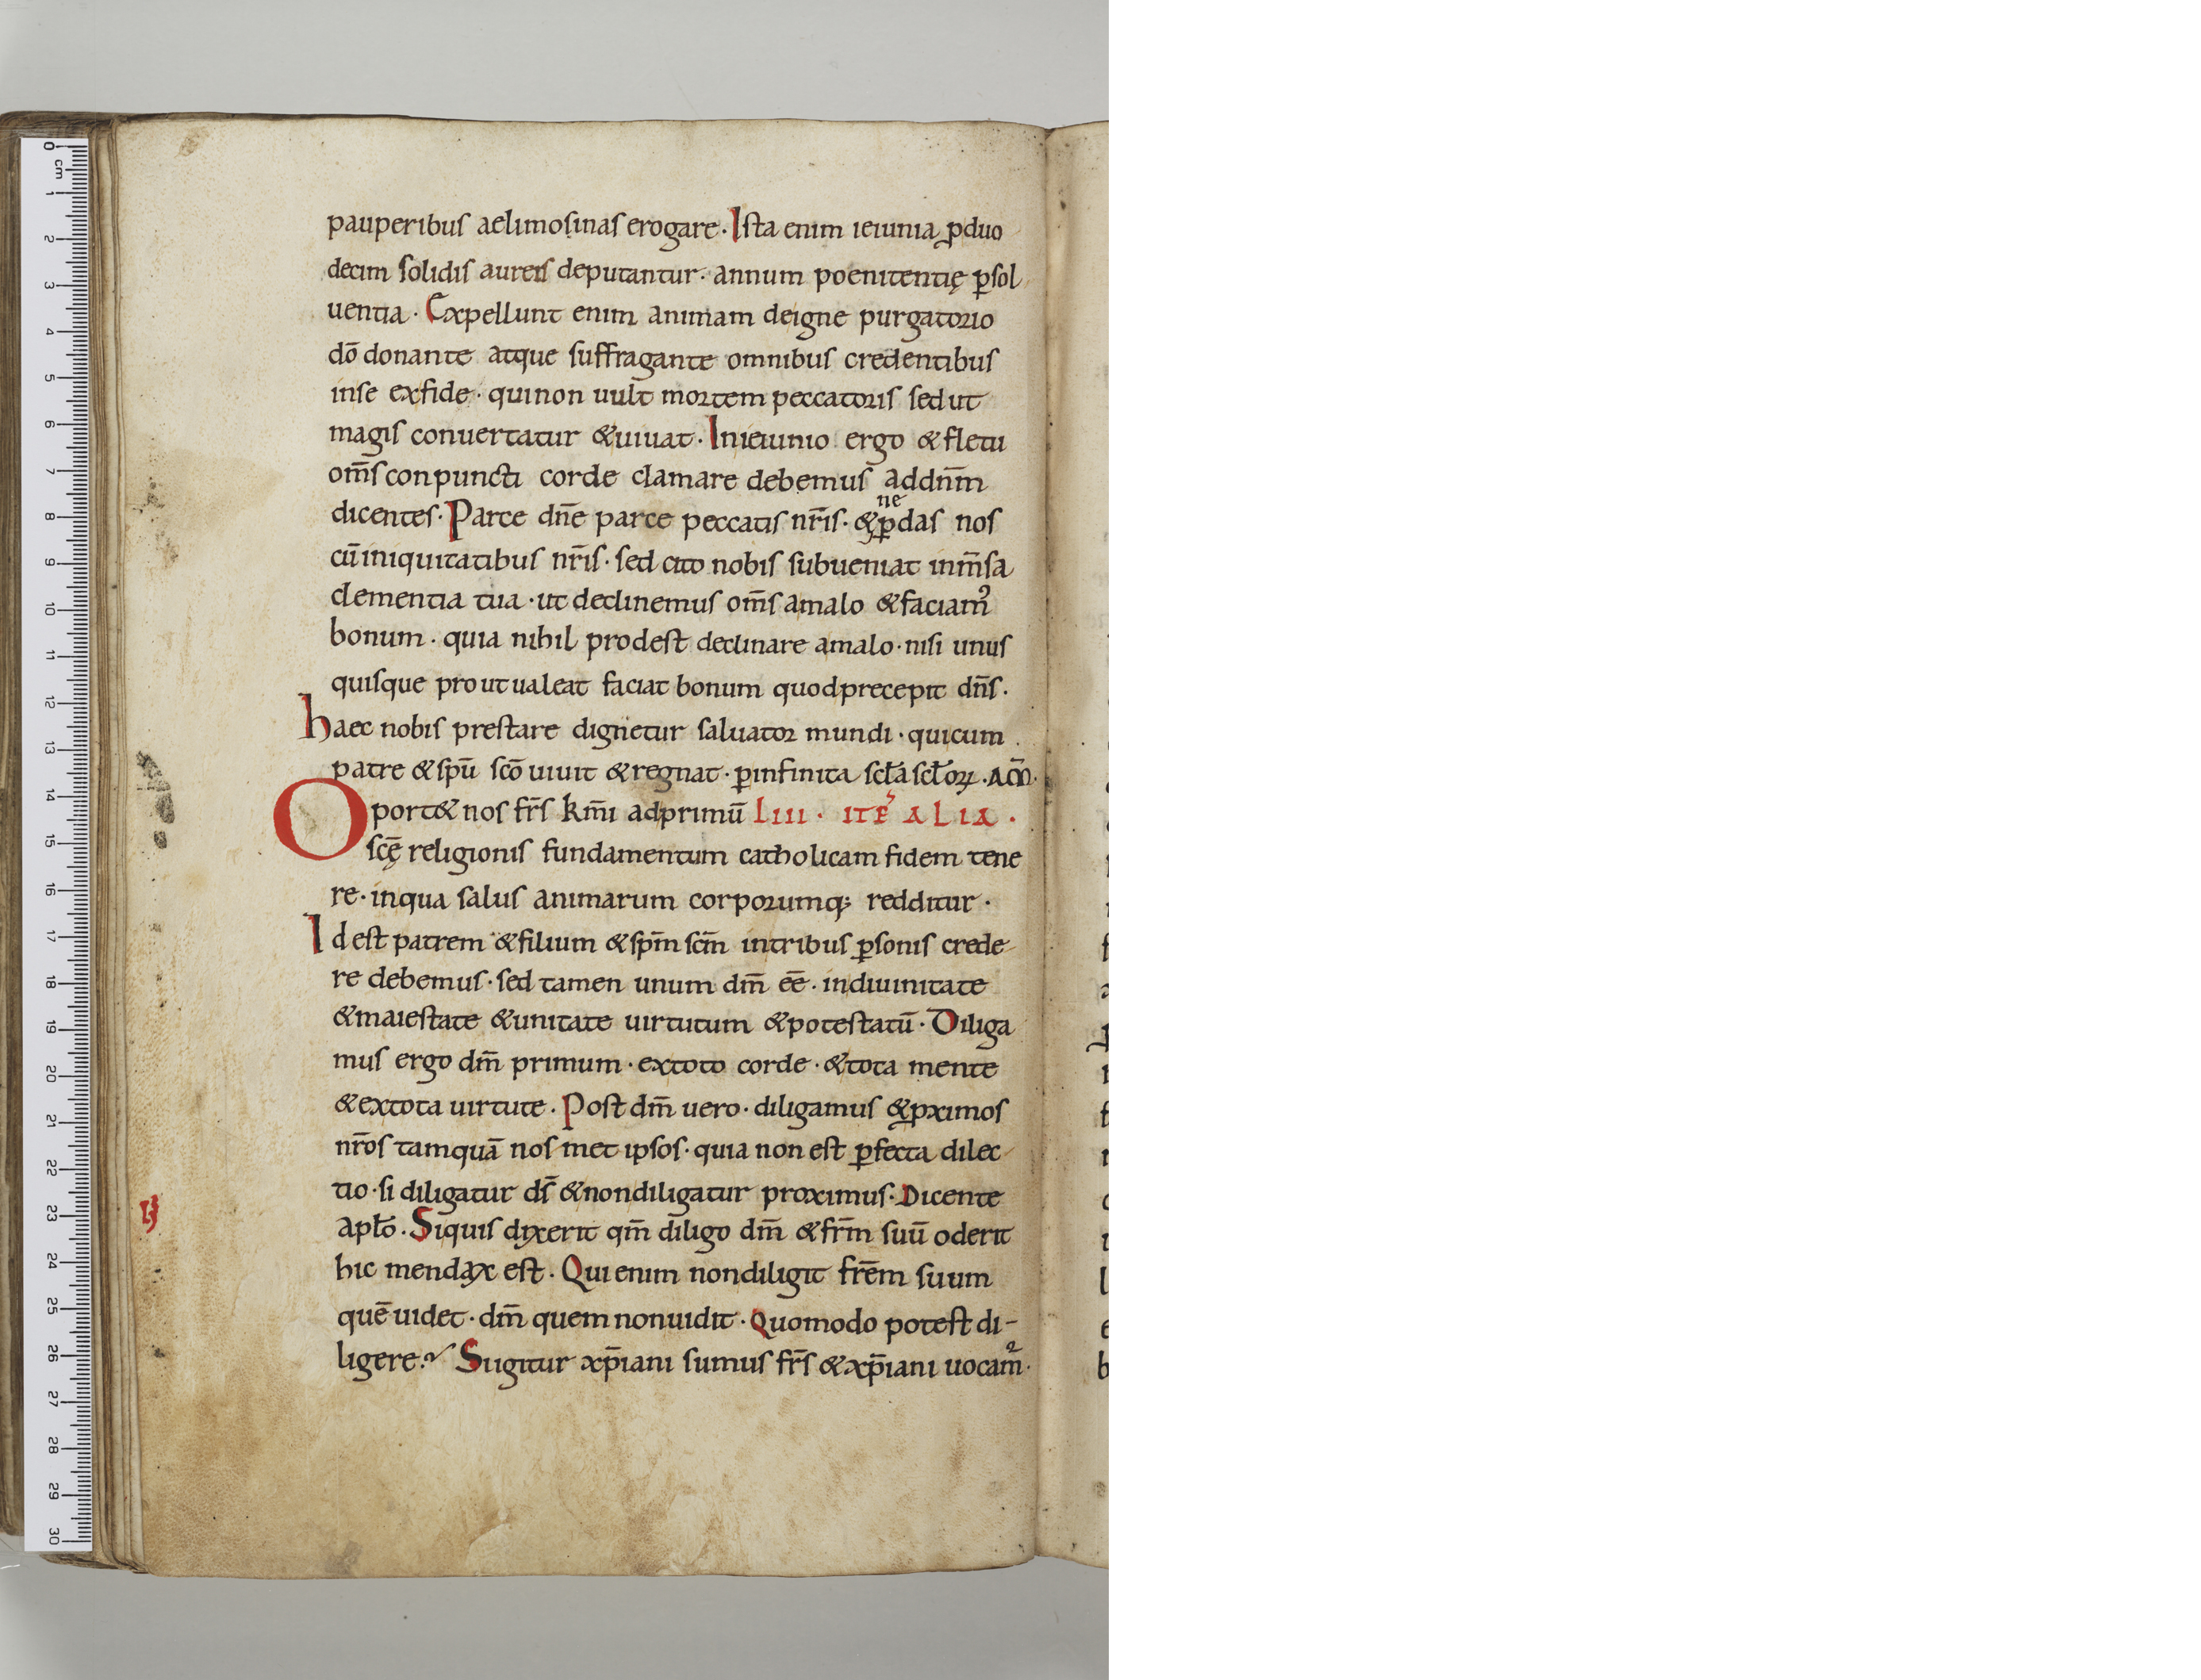 pauperibus aelimosinas erogare. Ista enim ieiunia ꝓduo
decim solidis aureis deputantur. annum poenitentię ꝑsol
uentia. Expellunt enim animam deigne purgatorio
dō donante atque suffragante omnibus credentibus
inse exfide. quinon uult̄ mortem peccatoris sedut
magis conuertatur &uiuat. Inieiunio ergo & fletu
om̄s conpuncti corde clamare debemus addn̄m
dicentes. Parce dn̄e parce peccatis nr̄is. & ne ꝑdas nos
cū iniquitatibus nr̄is. sed cito nobis subueniat inm̄sa
clementia tua. ut declinemus om̄s amalo & faciamꝰ
bonum. quia nihil prodest declinare amalo. nisi unus
quisque prout ualeat faciat bonum quodprecepit dn̄s.
haec nobis prestare dignetur saluator mundi. quicum
patre & spū scō uiuit & regnat. ꝑinfinita scła scłoꝝ. AM̄.
Oport& nos fr̄s km̄i adprimū LIII. ITĒ ALIA.
scę̄ religionis fundamentum catholicam fidem tene
re. inqua salus animarum corporumq; redditur.
Id est patrem & filium & spm̄ scm̄ intribus ꝑsonis crede
re debemus. sed tamen unum dm̄ eē. indiuinitate
& maiestate & unitate uirtutum & potestatū. Diliga
mus ergo dm̄ primum. extoto corde. & tota mente
& extota uirtute. Post dm̄ uero. diligamus & ꝓximos
nr̄os tamquā nos met ipsos. quia non est ꝑfecta dilec
tio. si diligatur ds̄ & nondiligatur proximus. Dicente
apło. Siquis dixerit qm̄ diligo dm̄ & fr̄m suū oderit
hic mendax est. Qui enim nondiligit fr̄em suum
quē uidet. dm̄ quem nonuidit. Quomodo potest di-
ligere? Siigitur xp̄iani sumus fr̄s & xp̄iani uocam̄.
0 cm 1 2 3 4 5 6 7 8 9 10 11 12 13 14 15 16 17 18 19 20 21 22 23 24 25 26 27 28 29 30